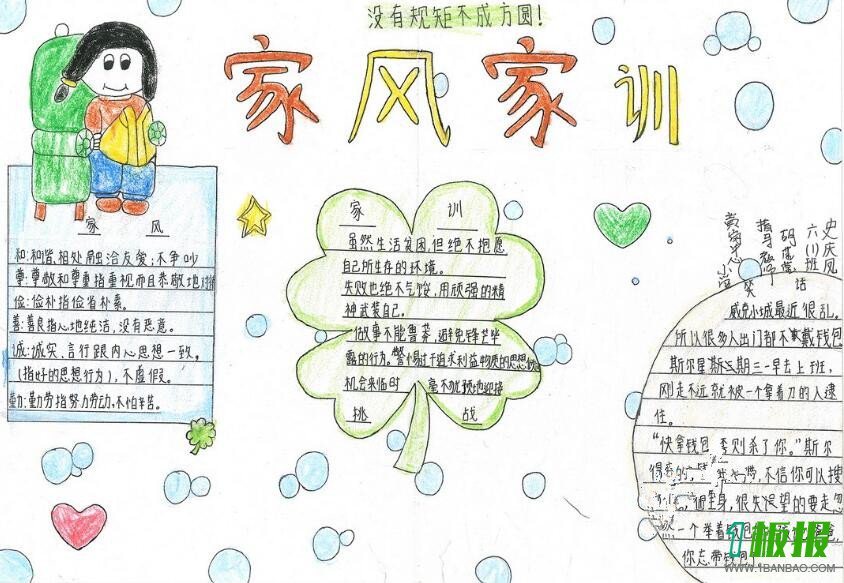 没有规矩不成方圆!
家风家训
家 风
和:和谐,相处融洽友爱,不争吵
尊:尊敬和尊重指重视而且恭敬地对待
俭:俭朴指俭省朴素。
善:善良指心地纯洁,没有恶意。
诚:诚实,言行跟内心思想一致。
(指好的思想行为),不虚假。
勤:勤劳指努力劳动,不怕辛苦。
家 训
虽然生活贫困,但绝不抱愿
自己所生存的环境。
失败也绝不气馁,用顽强的精
神武装自己。
做事不能鲁莽,避免锋芒毕
露的行为。警惕过于追求利益物质的思想
机会来临时 毫不犹豫地迎接
挑 战
史庆凤
六(1)班
指导教师
笑 话
威克小城最近很乱。
所以很多人出门都不戴钱包
斯尔星期三一早去上班,
刚走不远就被一个拿着刀的人逮
住。
“快拿钱包,否则杀了你。”斯尔
不信你可以搜
搜身,很失望的要走
一个举着钱包
你忘带钱包
1板报
WWW.1BANBAO.COM